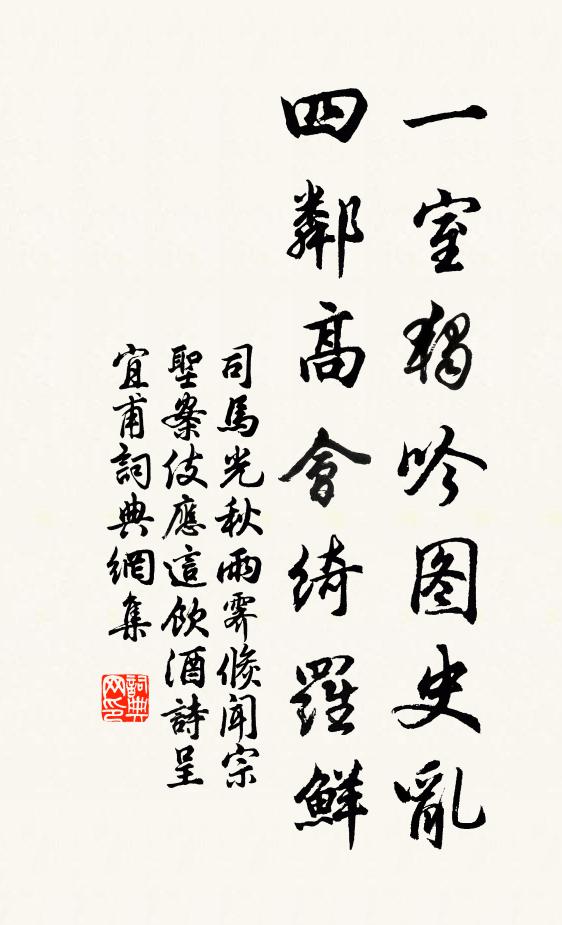 一室獨吟图史亂
四鄰高會綺羅鮮
司馬光秋雨霽倐闻宗
聖案伎應這飲酒詩呈
宜甫詞典網集
詞典网印